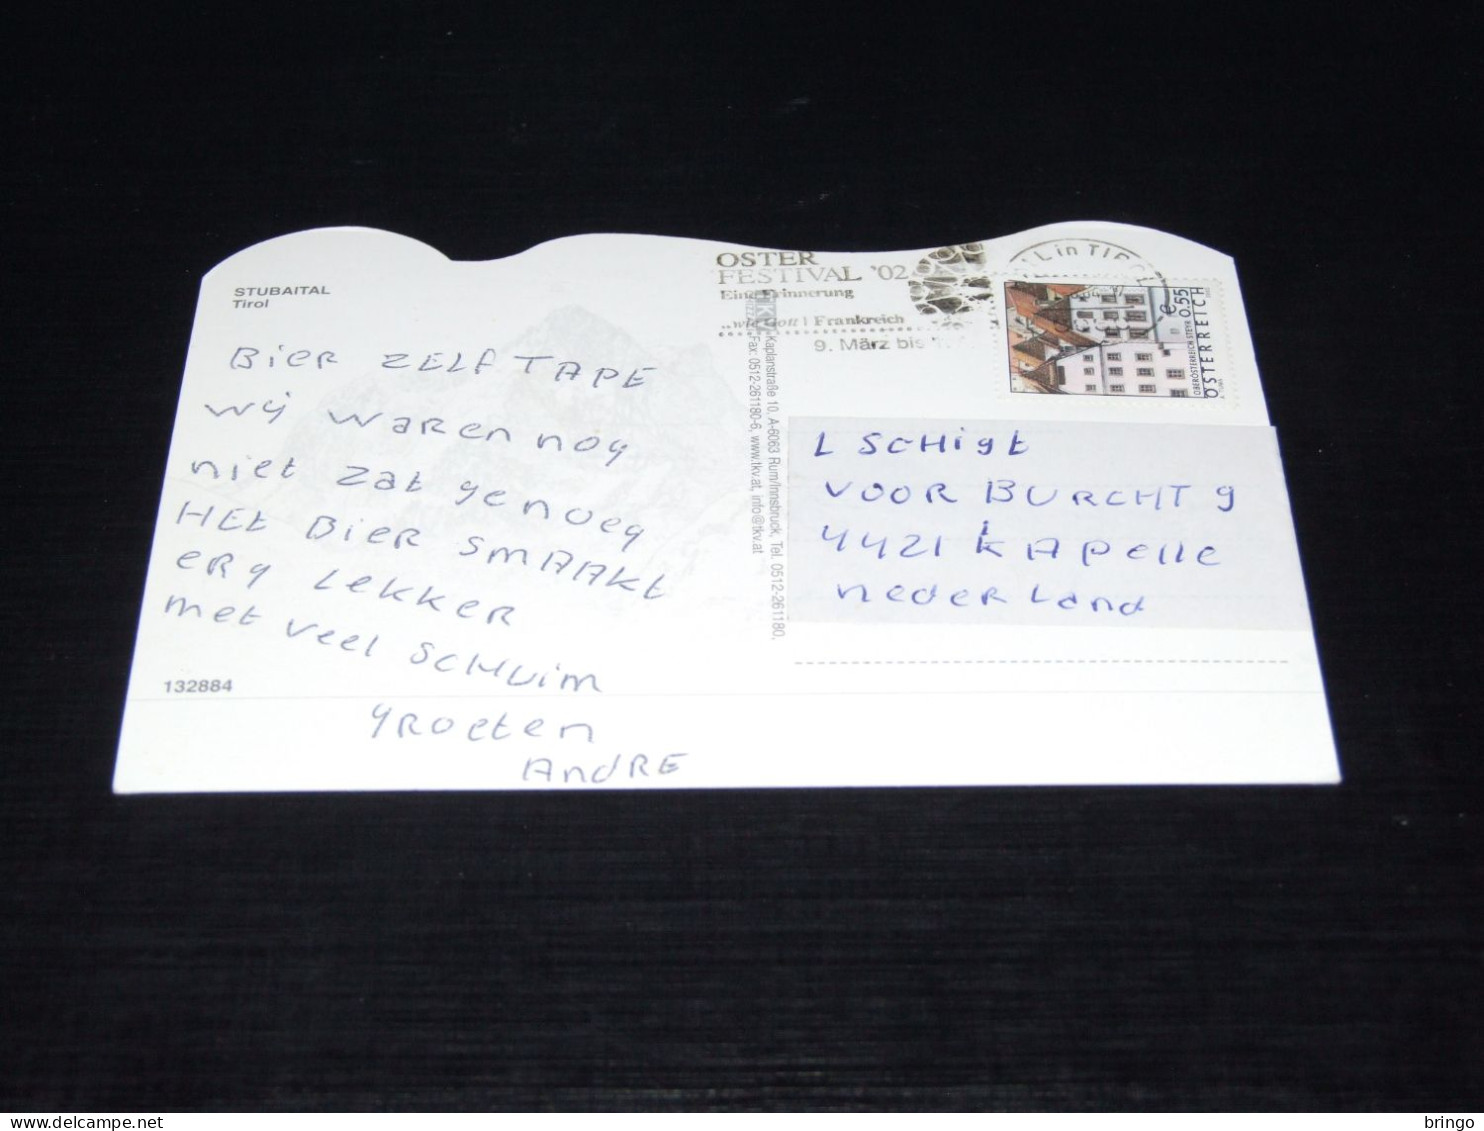 STUBAITAL
Tirol
BIER ZELF TAPE
wij waren nog
niet zat genoeg
HEt BIER SMAAKt
ERg LEKKER
met veel SCHUIM
gROEten
AndRE
132884
OSTER
FESTIVAL '02
Eine Erinnerung
Frankreich
9. März bis
IN TIROL
e 0.55
OBERÖSTERREICH STEYR
ÖSTERREICH
Kaplanstraße 10, A-6063 Rum/Innsbruck, Tel. 0512-261180,
Fax: 0512-261180-6, www.tkv.at, info@tkv.at
L SCHIgt
VOORBURCHT 9
4421 KAPelle
nederland
bringo